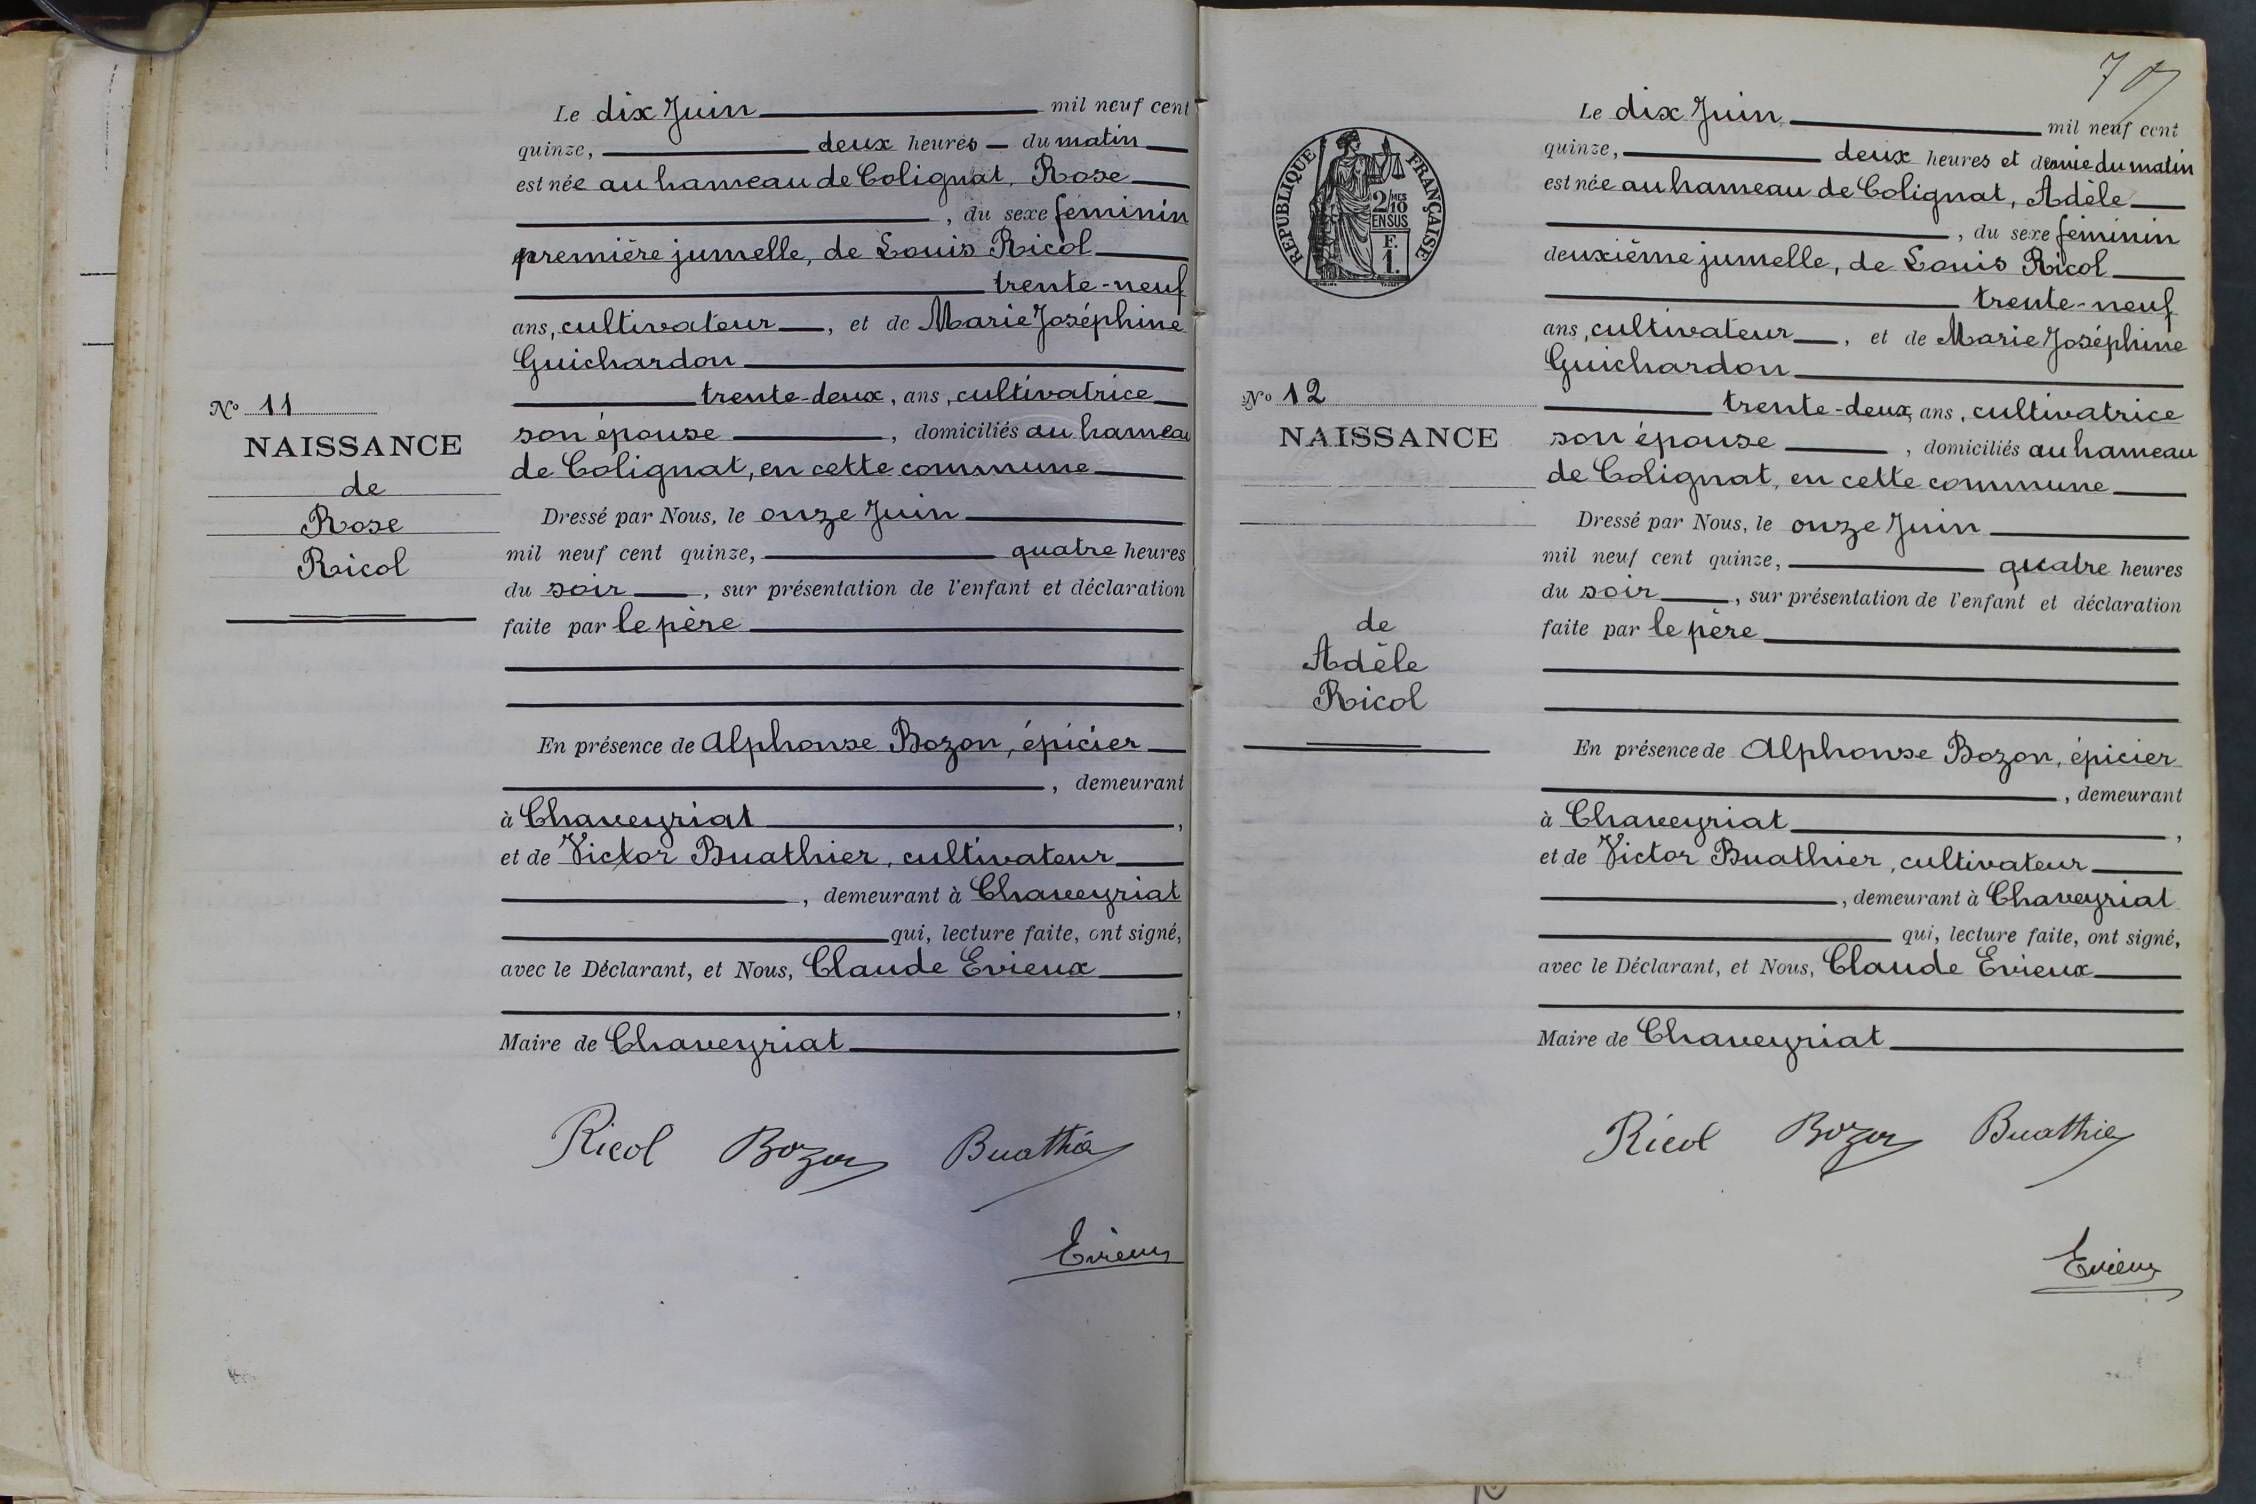 Le dix Juin mil neuf cent
quinze, deux heures du matin
est née au hameau de Colignat, Rose
, du sexe féminin
première jumelle, de Louis Ricol
trente-neuf
ans, cultivateur, et de Marie Joséphine
Guichardon
trente-deux, ans, cultivatrice
son épouse, domiciliés au hameau
de Colignat, en cette commune
Dressé par Nous, le onze Juin
mil neuf cent quinze, quatre heures
du soir, sur présentation de l'enfant et déclaration
faite par le père
En présence de Alphonse Bozon, épicier
, demeurant
à Chaveyriat,
et de Victor Buathier, cultivateur
, demeurant à Chaveyriat
qui, lecture faite, ont signé,
avec le Déclarant, et Nous, Claude Evieux
,
Maire de Chaveyriat
Nº 11
NAISSANCE
de
Rose
Ricol
Ricol Bozon Buathier
Evieux
RÉPUBLIQUE FRANÇAISE
2/MES
10
EN SUS
F.
1.
Le dix Juin mil neuf cent
quinze, deux heures et demie du matin
est née au hameau de Colignat, Adèle
, du sexe féminin
deuxième jumelle, de Louis Ricol
trente-neuf
ans, cultivateur, et de Marie Joséphine
Guichardon
trente-deux, ans, cultivatrice
son épouse, domiciliés au hameau
de Colignat, en cette commune
Dressé par Nous, le onze Juin
mil neuf cent quinze, quatre heures
du soir, sur présentation de l'enfant et déclaration
faite par le père
En présence de Alphonse Bozon, épicier
, demeurant
à Chaveyriat,
et de Victor Buathier, cultivateur
, demeurant à Chaveyriat
qui, lecture faite, ont signé,
avec le Déclarant, et Nous, Claude Evieux
Maire de Chaveyriat
Nº 12
NAISSANCE
de
Adèle
Ricol
Ricol Bozon Buathier
Evieux